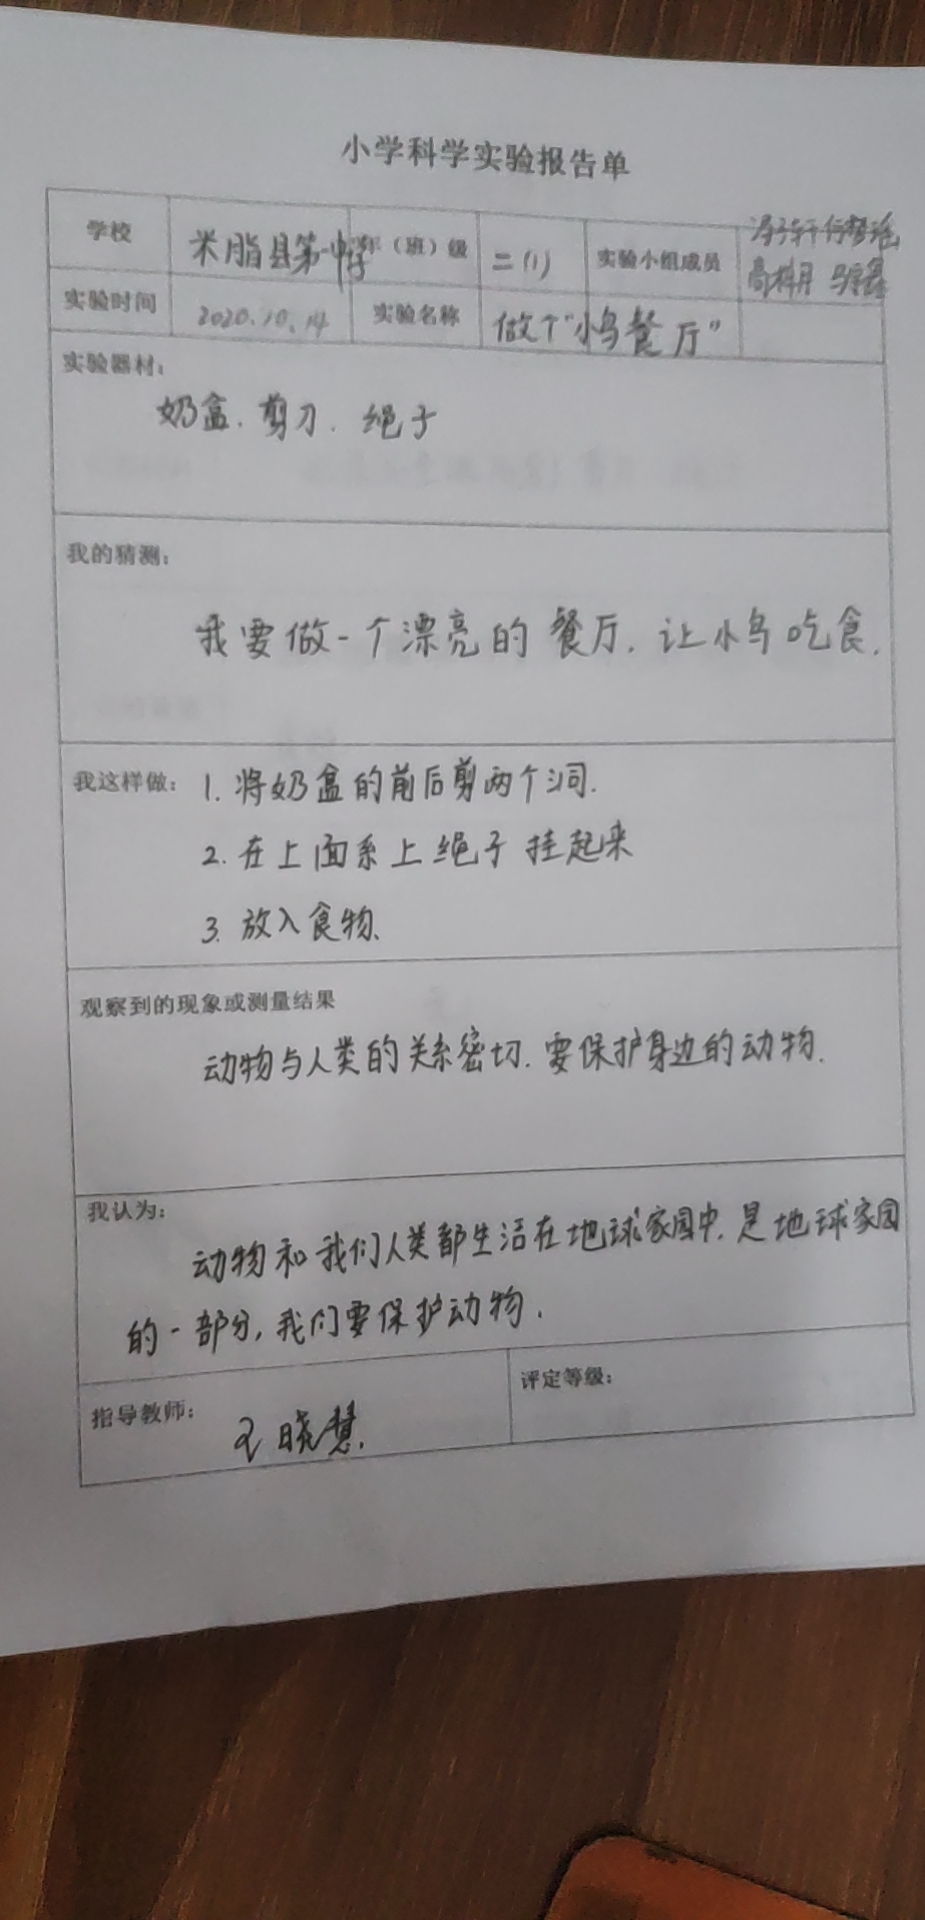 小学科学实验报告单
学校 米脂县第一中学 年（班）级 二(1) 实验小组成员
实验时间 2020.10.14 实验名称 做个“小鸟餐厅”
实验器材：
奶盒.剪刀.绳子
我的猜测：
我要做一个漂亮的餐厅.让小鸟吃食.
我这样做：1.将奶盒的前后剪两个洞.
2.在上面系上绳子挂起来
3.放入食物、
观察到的现象或测量结果
动物与人类的关系密切.要保护身边的动物.
我认为：
动物和我们人类都生活在地球家园中.是地球家园
的一部分,我们要保护动物.
指导教师： 王晓慧. 评定等级：